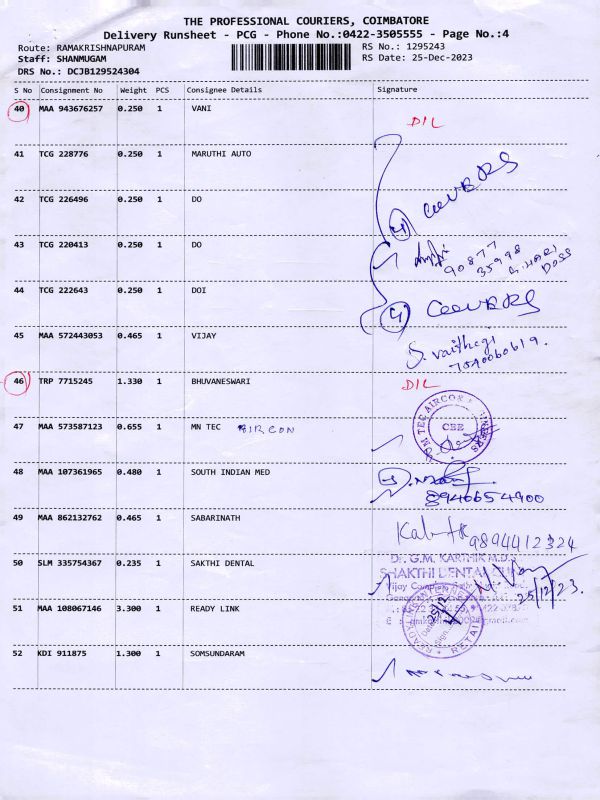 THE PROFESSIONAL COURIERS, COIMBATORE
Delivery Runsheet - PCG - Phone No.:0422-3505555 - Page No.:4
Route: RAMAKRISHNAPURAM
RS No.: 1295243
Staff: SHANMUGAM
RS Date: 25-Dec-2023
DRS No.: DCJB129524304
S No Consignment No Weight PCS Consignee Details Signature
40 MAA 943676257 0.250 1 VANI
DIL
41 TCG 228776 0.250 1 MARUTHI AUTO
42 TCG 226496 0.250 1 DO
4
43 TCG 220413 0.250 1 DO
90877
35998
HARI
DOSS
44 TCG 222643 0.250 1 DOI
4
45 MAA 572443053 0.465 1 VIJAY
46 TRP 7715245 1.330 1 BHUVANESWARI DIL
47 MAA 573587123 0.655 1 MN TEC AIRCON
M TEC AIRCON
CBE
48 MAA 107361965 0.480 1 SOUTH INDIAN MED
8946654900
49 MAA 862132762 0.465 1 SABARINATH
9894412324
50 SLM 335754367 0.235 1 SAKTHI DENTAL
Dr. G.M. KARTHIK M.D.S.
SHAKTHI DENTAL
Vijay
25/12/23.
51 MAA 108067146 3.300 1 READY LINK
RETAIL
52 KDI 911875 1.300 1 SOMSUNDARAM